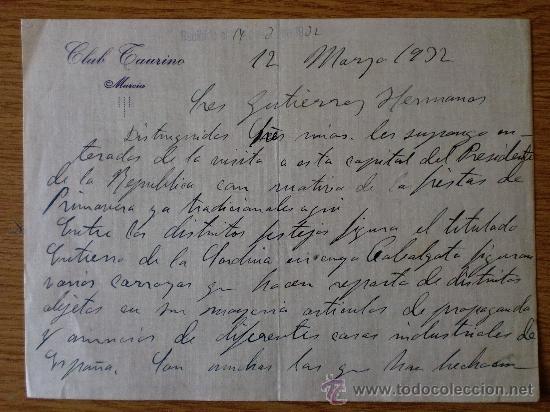 14 3 32
Club Taurino
Murcia
12 Marzo 1932
Sres Gutierrez Hermanos
Distinguidos Sres mios. les supongo en-
terados de la visita a esta capital del Presidente
de la Republica con motivo de las fiestas de
Primavera ya tradicionales aqui
Entre los distintos festejos figura el titulado
Entierro de la Sardina en cuya Cabalgata figuran
varios carrozas que hacen reparto de distintos
objetos en su mayoria articulos de propaganda
y anuncios de diferentes casas industriales de
España. Son muchas las que han hecho
todocoleccion
www.todocoleccion.net